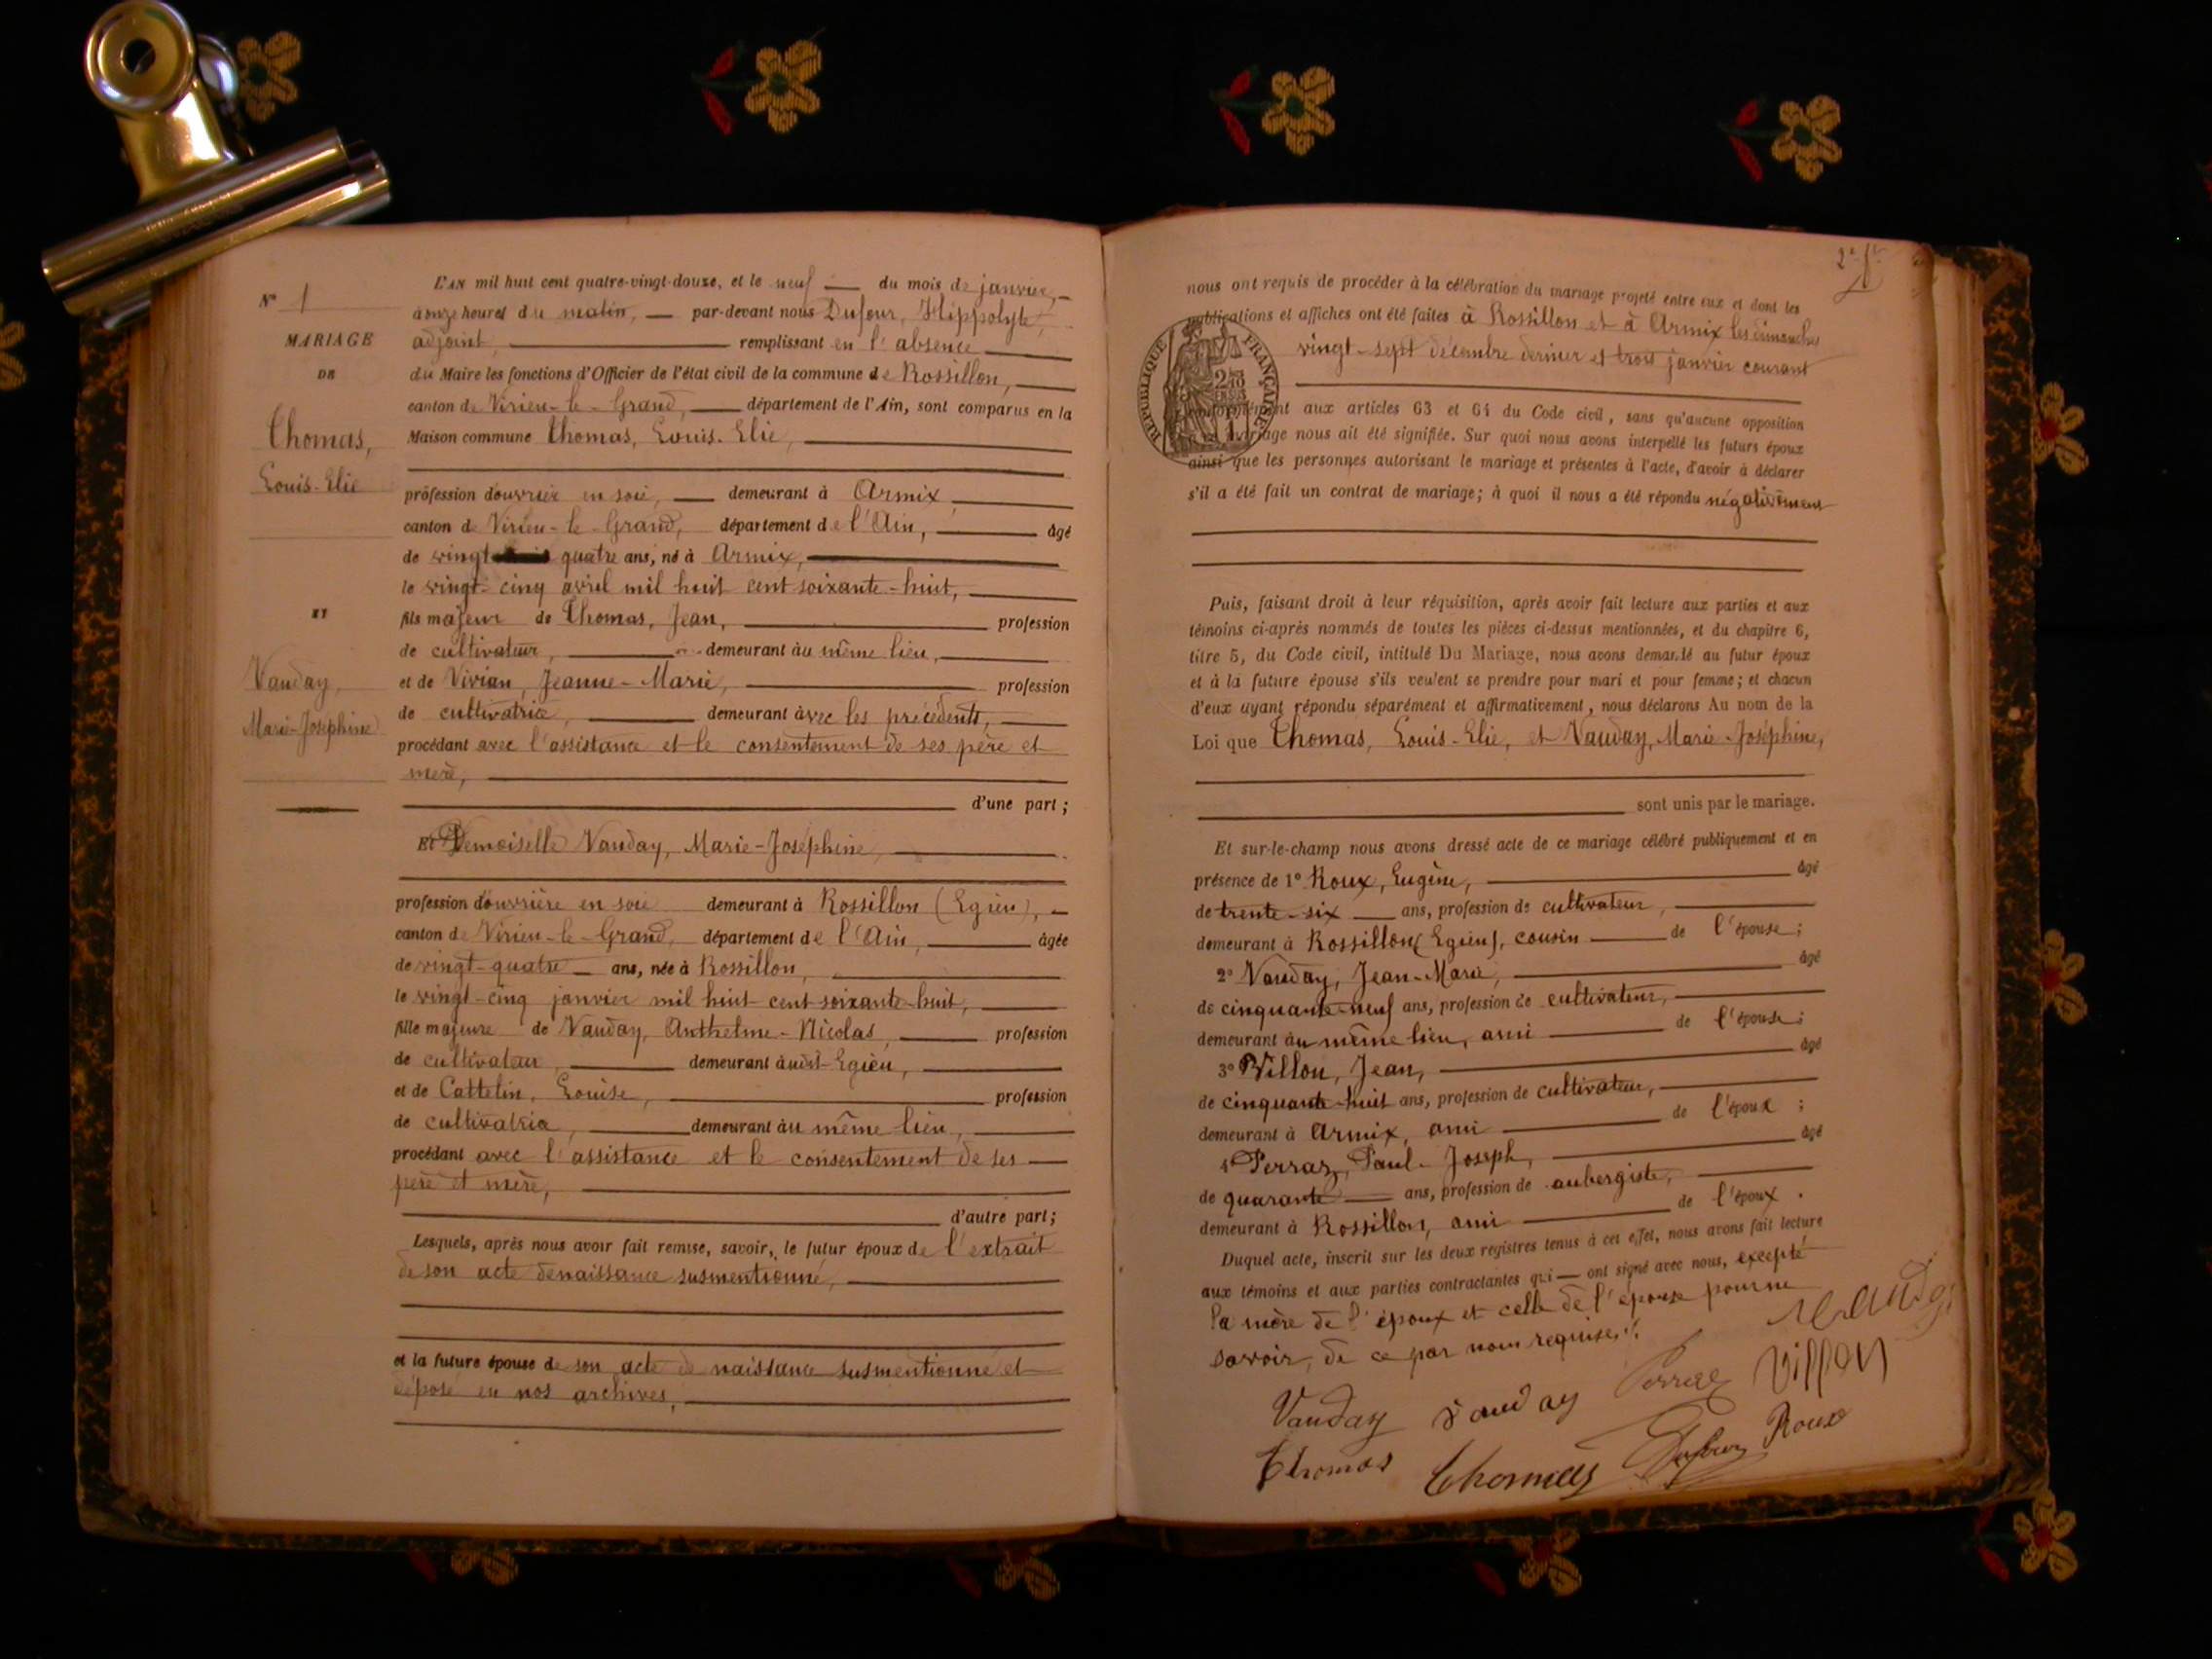 N° 1
MARIAGE
DE
Thomas,
Louis-Elie
ET
Vauday,
Marie-Joséphine
L'AN mil huit cent quatre-vingt-douze, et le neuf du mois de janvier,
à onze heures du matin, par-devant nous Dufour, Hippolyte,
adjoint, remplissant en l'absence
du Maire les fonctions d'Officier de l'état civil de la commune de Rossillon,
canton de Virieu-le-Grand, département de l'Ain, sont comparus en la
Maison commune Thomas, Louis-Elie,
profession d'ouvrier en soie, demeurant à Armix,
canton de Virieu-le-Grand, département de l'Ain, âgé
de vingt quatre ans, né à Armix,
le vingt-cinq avril mil huit cent soixante-huit,
fils majeur de Thomas, Jean, profession
de cultivateur, demeurant au même lieu,
et de Vivian, Jeanne-Marie, profession
de cultivatrice, demeurant avec les précédents,
procédant avec l'assistance et le consentement de ses père et
mère,
d'une part;
Et Demoiselle Vauday, Marie-Joséphine,
profession d'ouvrière en soie demeurant à Rossillon (Egieu),
canton de Virieu-le-Grand, département de l'Ain, âgée
de vingt-quatre ans, née à Rossillon,
le vingt-cinq janvier mil huit cent soixante-huit,
fille majeure de Vauday, Anthelme-Nicolas, profession
de cultivateur, demeurant audit Egieu,
et de Cattelin, Louise, profession
de cultivatrice, demeurant au même lieu,
procédant avec l'assistance et le consentement de ses
père et mère,
d'autre part;
Lesquels, après nous avoir fait remise, savoir, le futur époux de l'extrait
de son acte de naissance susmentionné,
et la future épouse de son acte de naissance susmentionné et
déposé en nos archives,
nous ont requis de procéder à la célébration du mariage projeté entre eux et dont les
publications et affiches ont été faites à Rossillon et à Armix les dimanches
vingt-sept décembre dernier et trois janvier courant
RÉPUBLIQUE FRANÇAISE
conformément aux articles 63 et 64 du Code civil, sans qu'aucune opposition
mariage nous ait été signifiée. Sur quoi nous avons interpellé les futurs époux
ainsi que les personnes autorisant le mariage et présentes à l'acte, d'avoir à déclarer
s'il a été fait un contrat de mariage; à quoi il nous a été répondu négativement
Puis, faisant droit à leur réquisition, après avoir fait lecture aux parties et aux
témoins ci-après nommés de toutes les pièces ci-dessus mentionnées, et du chapitre 6,
titre 5, du Code civil, intitulé Du Mariage, nous avons demandé au futur époux
et à la future épouse s'ils veulent se prendre pour mari et pour femme; et chacun
d'eux ayant répondu séparément et affirmativement, nous déclarons Au nom de la
Loi que Thomas, Louis-Elie, et Vauday, Marie-Joséphine,
sont unis par le mariage.
Et sur-le-champ nous avons dressé acte de ce mariage célébré publiquement et en
présence de 1° Roux, Eugène, âgé
de trente-six ans, profession de cultivateur,
demeurant à Rossillon (Egieu), cousin de l'épouse;
2° Vauday, Jean-Marie, âgé
de cinquante-neuf ans, profession de cultivateur,
demeurant au même lieu, ami de l'épouse;
3° Villon, Jean, âgé
de cinquante-huit ans, profession de cultivateur,
demeurant à Armix, ami de l'époux;
4° Perraz, Paul-Joseph, âgé
de quarante ans, profession de aubergiste,
demeurant à Rossillon, ami de l'époux.
Duquel acte, inscrit sur les deux registres tenus à cet effet, nous avons fait lecture
aux témoins et aux parties contractantes qui ont signé avec nous, excepté
la mère de l'époux et celle de l'épouse pour ne
savoir, de ce par nous requises.
Vauday Vauday Perraz Villon
Thomas Thomas Dufour Roux